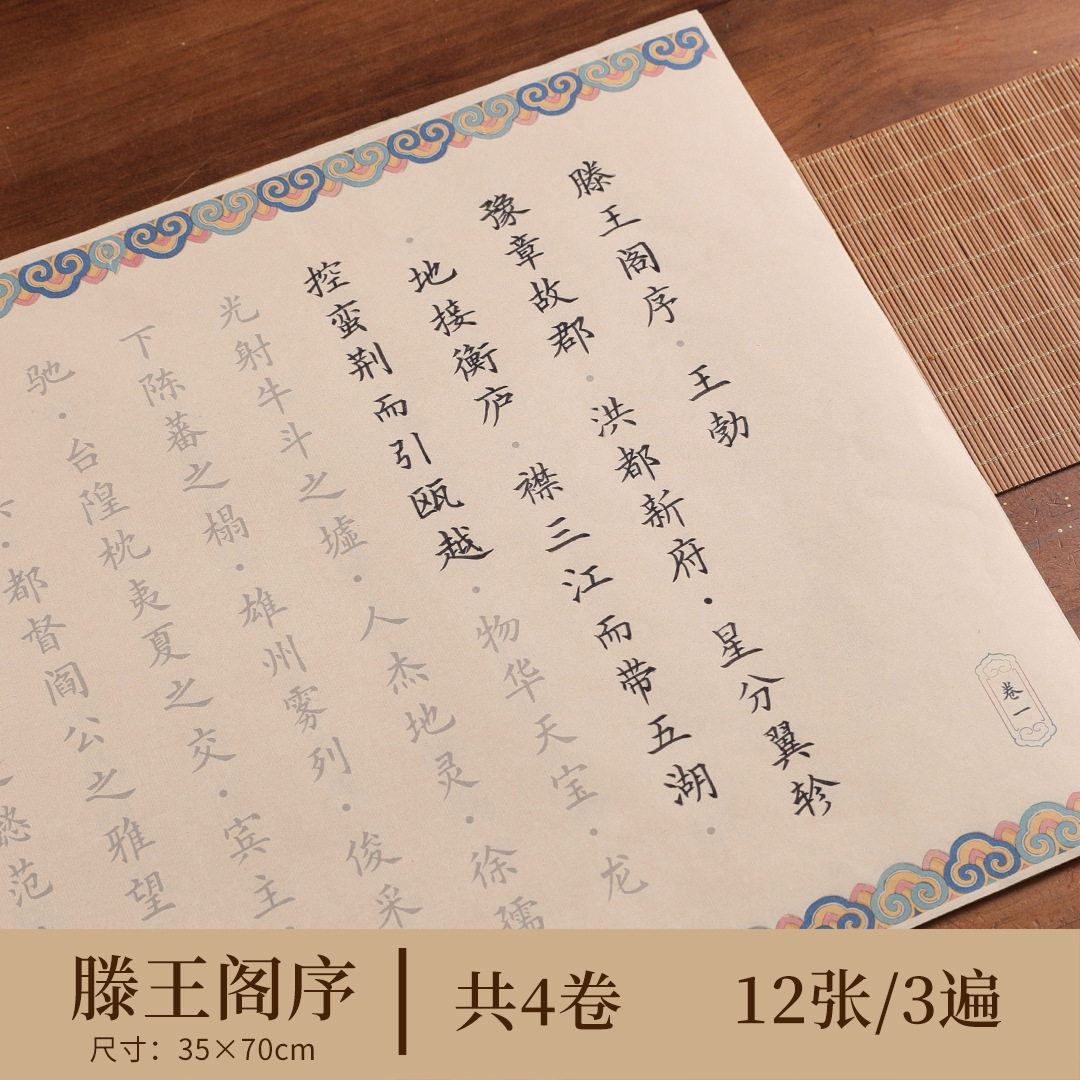 滕王阁序·王勃
豫章故郡·洪都新府·星分翼轸
·地接衡庐·襟三江而带五湖·
控蛮荆而引瓯越·物华天宝·龙
光射牛斗之墟·人杰地灵·徐孺
下陈蕃之榻·雄州雾列·俊采
驰·台隍枕夷夏之交·宾主
·都督阎公之雅望
懿范
卷一
滕王阁序
尺寸：35×70cm
共4卷
12张/3遍